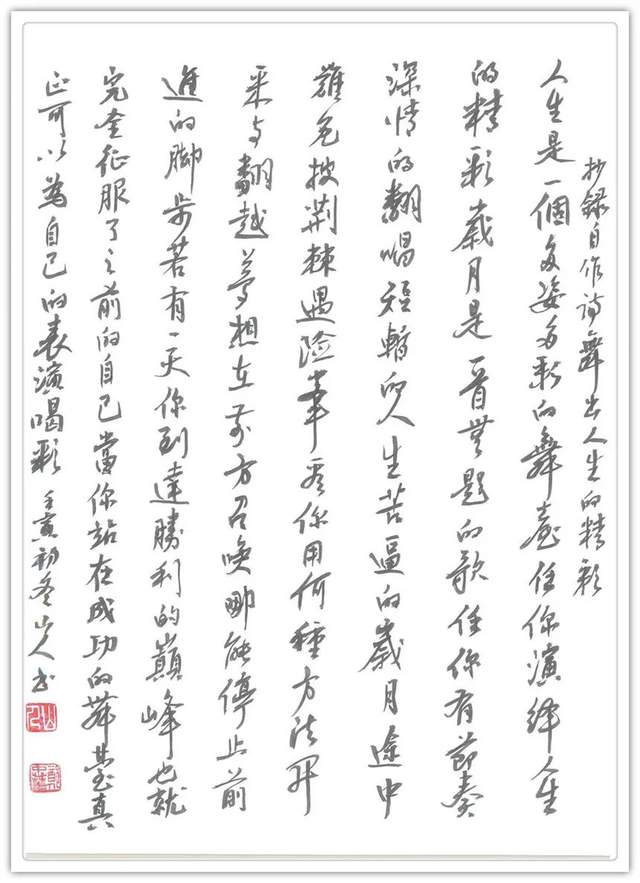 抄録自作詩舞出人生的精彩
人生是一個多姿多彩的舞臺任你演绎人生
的精彩歲月是一首無題的歌任你有節奏
深情的翻唱短暫的人生苦逼的歲月途中
難免披荆棘遇险峯看你用何種方法開
采与翻越夢想在前方召唤哪能停止前
進的脚步若有一天你到達勝利的巔峰也就
完全征服了之前的自己當你站在成功的舞臺真
正可以為自己的表演喝彩 壬寅初冬山人书
山人